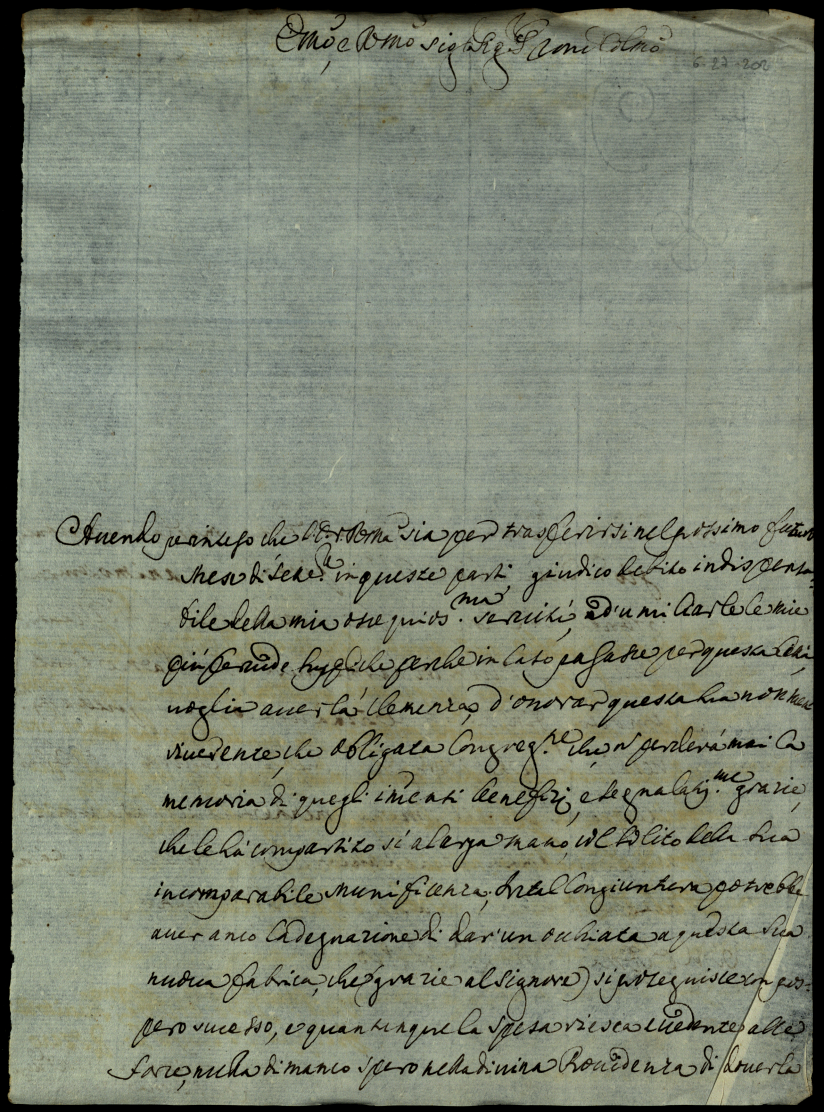 Em̃o, e Rm̃o Sig.r Sig.r P̃rone Colm̃o
6-27-202
Avendo io inteso che V. Em.a Rev̄ma sia per trasferirsi nel prossimo futuro
Mese di Sett.re in queste parti, giudico debito indispensa=
bile della mia ossequios.ma servitù, d'umiliarle le mie
più fervide suppliche perche in caso passasse per questa Città,
voglia aver la clemenza d'onorar questa sua non men
riverente, che obligata Congreg.ne che ñ perderà mai la
memoria di quegli im̃ensi beneficj, e segnalatis.me grazie,
che le hà compartito si à larga mano, col solito della sua
incomparabile Munificenza; In tal congiuntura potrebbe
aver anco la degnazione di dar' un occhiata a questa sua
nuova fabrica, che (grazie al Signore) si proseguisce con pros=
pero sucesso, e quantunque la spesa riesca eccedente alle
forze, nulla di manco spero nella divina Providenza di doverla